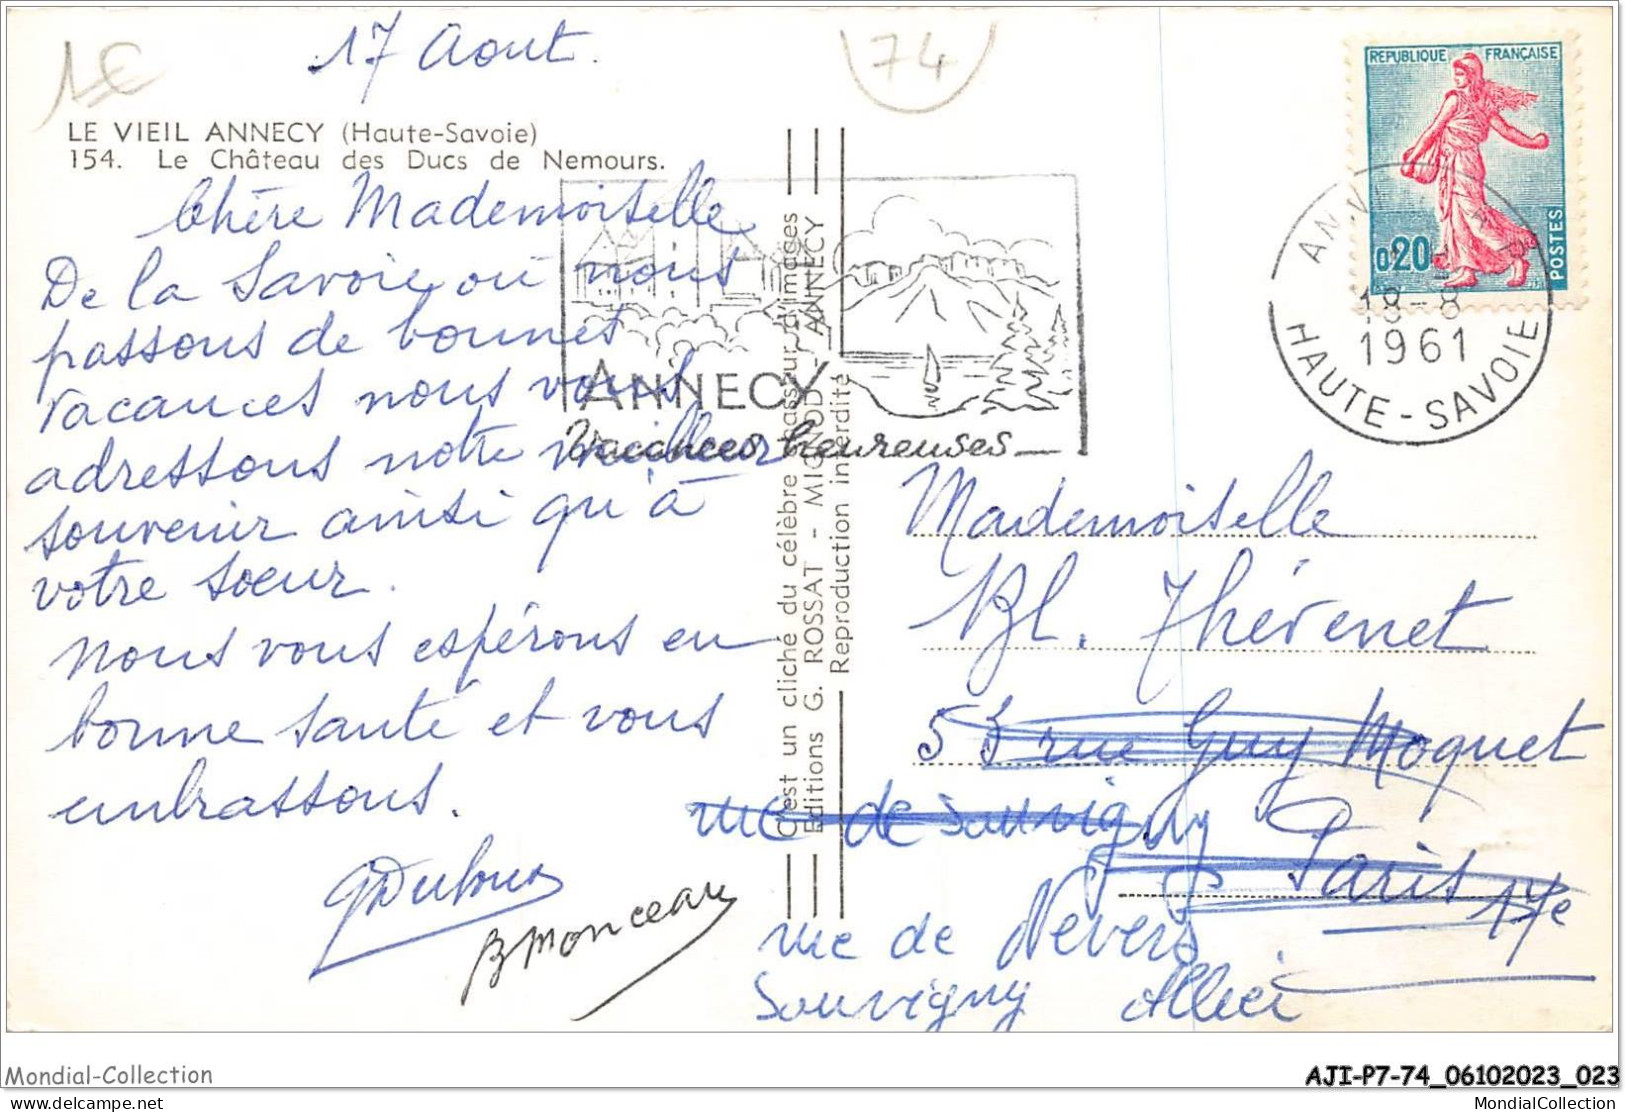 1€
17 Aout.
74
LE VIEIL ANNECY (Haute-Savoie)
154. Le Château des Ducs de Nemours.
Chère Mademoiselle
De la Savoie où nous
passons de bonnes
vacances nous vous
adressons notre meilleur
souvenir ainsi qu'à
votre sœur.
Nous vous espérons en
bonne santé et vous
embrassons.
B Monceau
ANNECY
Vacances heureuses
C'est un cliché du célèbre "pass'ur d'images
Editions G. ROSSAT - MIGNOD - ANNECY
Reproduction interdite
REPUBLIQUE FRANÇAISE
0,20
POSTES
18-8
1961
HAUTE-SAVOIE
Mademoiselle
Bl. Thévenet
53 rue Guy Moquet
Paris 17e
rue de Souvigny
rue de Nevers
Souvigny Allier
Mondial-Collection
AJI-P7-74_06102023_023
delcampe.net
MondialCollection